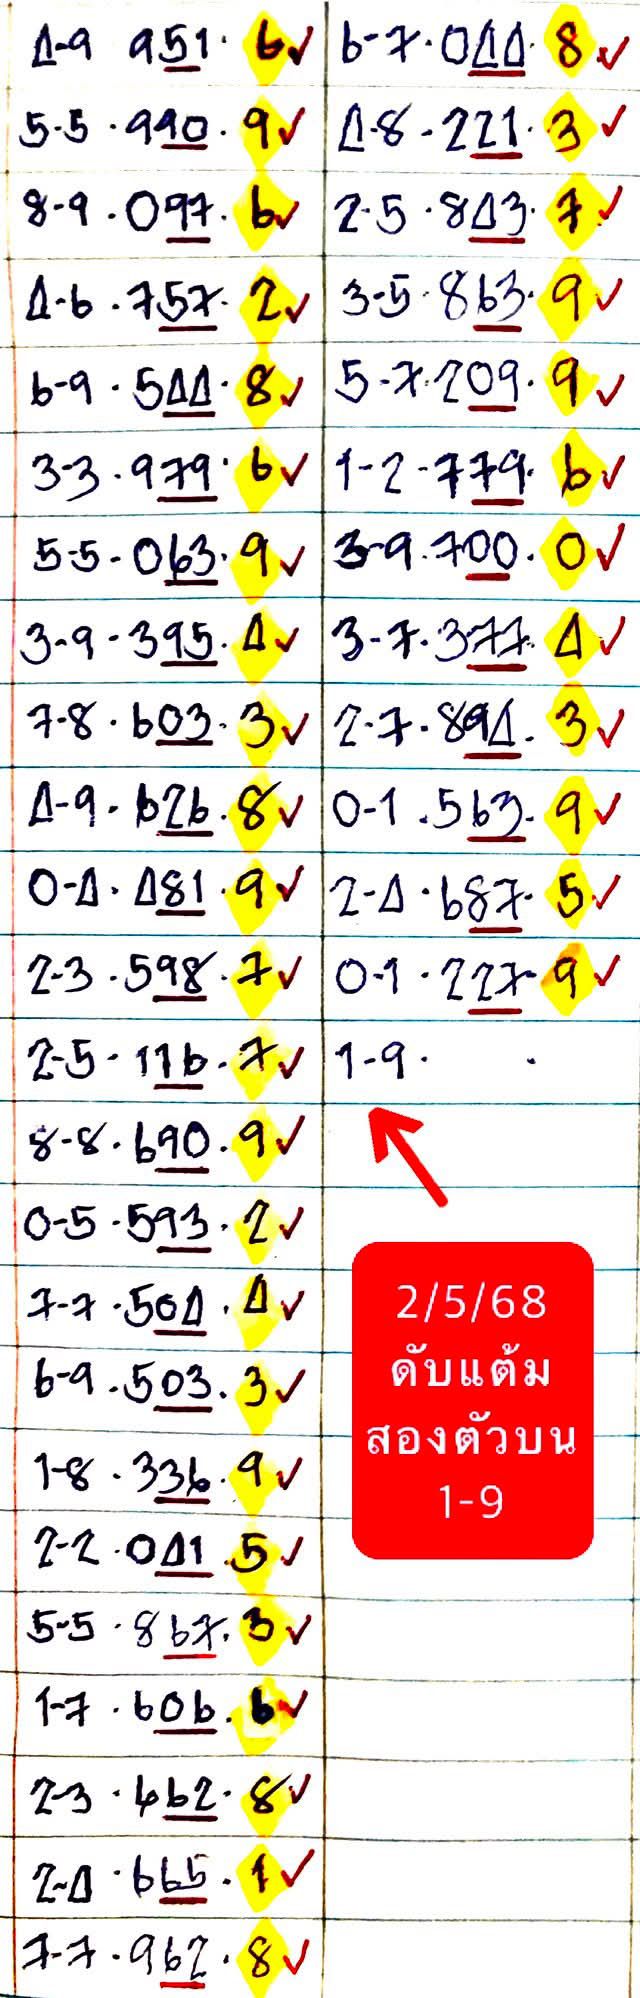 4-9 951. 6✓
5-5 . 990 . 9✓
8-9 . 097 . 6✓
4-6 . 757. 2✓
6-9 . 544 . 8✓
3-3 . 979 . 6✓
5-5 . 063 . 9✓
3-9 - 395 . 4✓
7-8 . 603 . 3✓
4-9 . 626 . 8✓
0-4 . 481 . 9✓
2-3 . 598 . 7✓
2-5 . 116 . 7✓
8-8 . 690 . 9✓
0-5 . 593 . 2✓
7-7 . 504 . 4✓
6-9 . 503 . 3✓
1-8 . 336 . 9✓
2-2 . 041 5✓
5-5 . 867 . 3✓
1-7 . 606 . 6✓
2-3 . 662 . 8✓
2-4 . 665 . 1✓
7-7 . 962 . 8✓
6-7 . 044 . 8✓
4-8 - 221 . 3✓
2-5 . 843 . 7✓
3-5 . 863 . 9✓
5-7 . 209 . 9✓
1-2 - 779 . 6✓
3-9 . 700 . 0✓
3-7 . 377 4✓
2-7 . 894 . 3✓
0-1 . 563 . 9✓
2-4 . 687 . 5✓
0-1 . 227 9✓
1-9 . .
2/5/68
ดับแต้ม
สองตัวบน
1-9